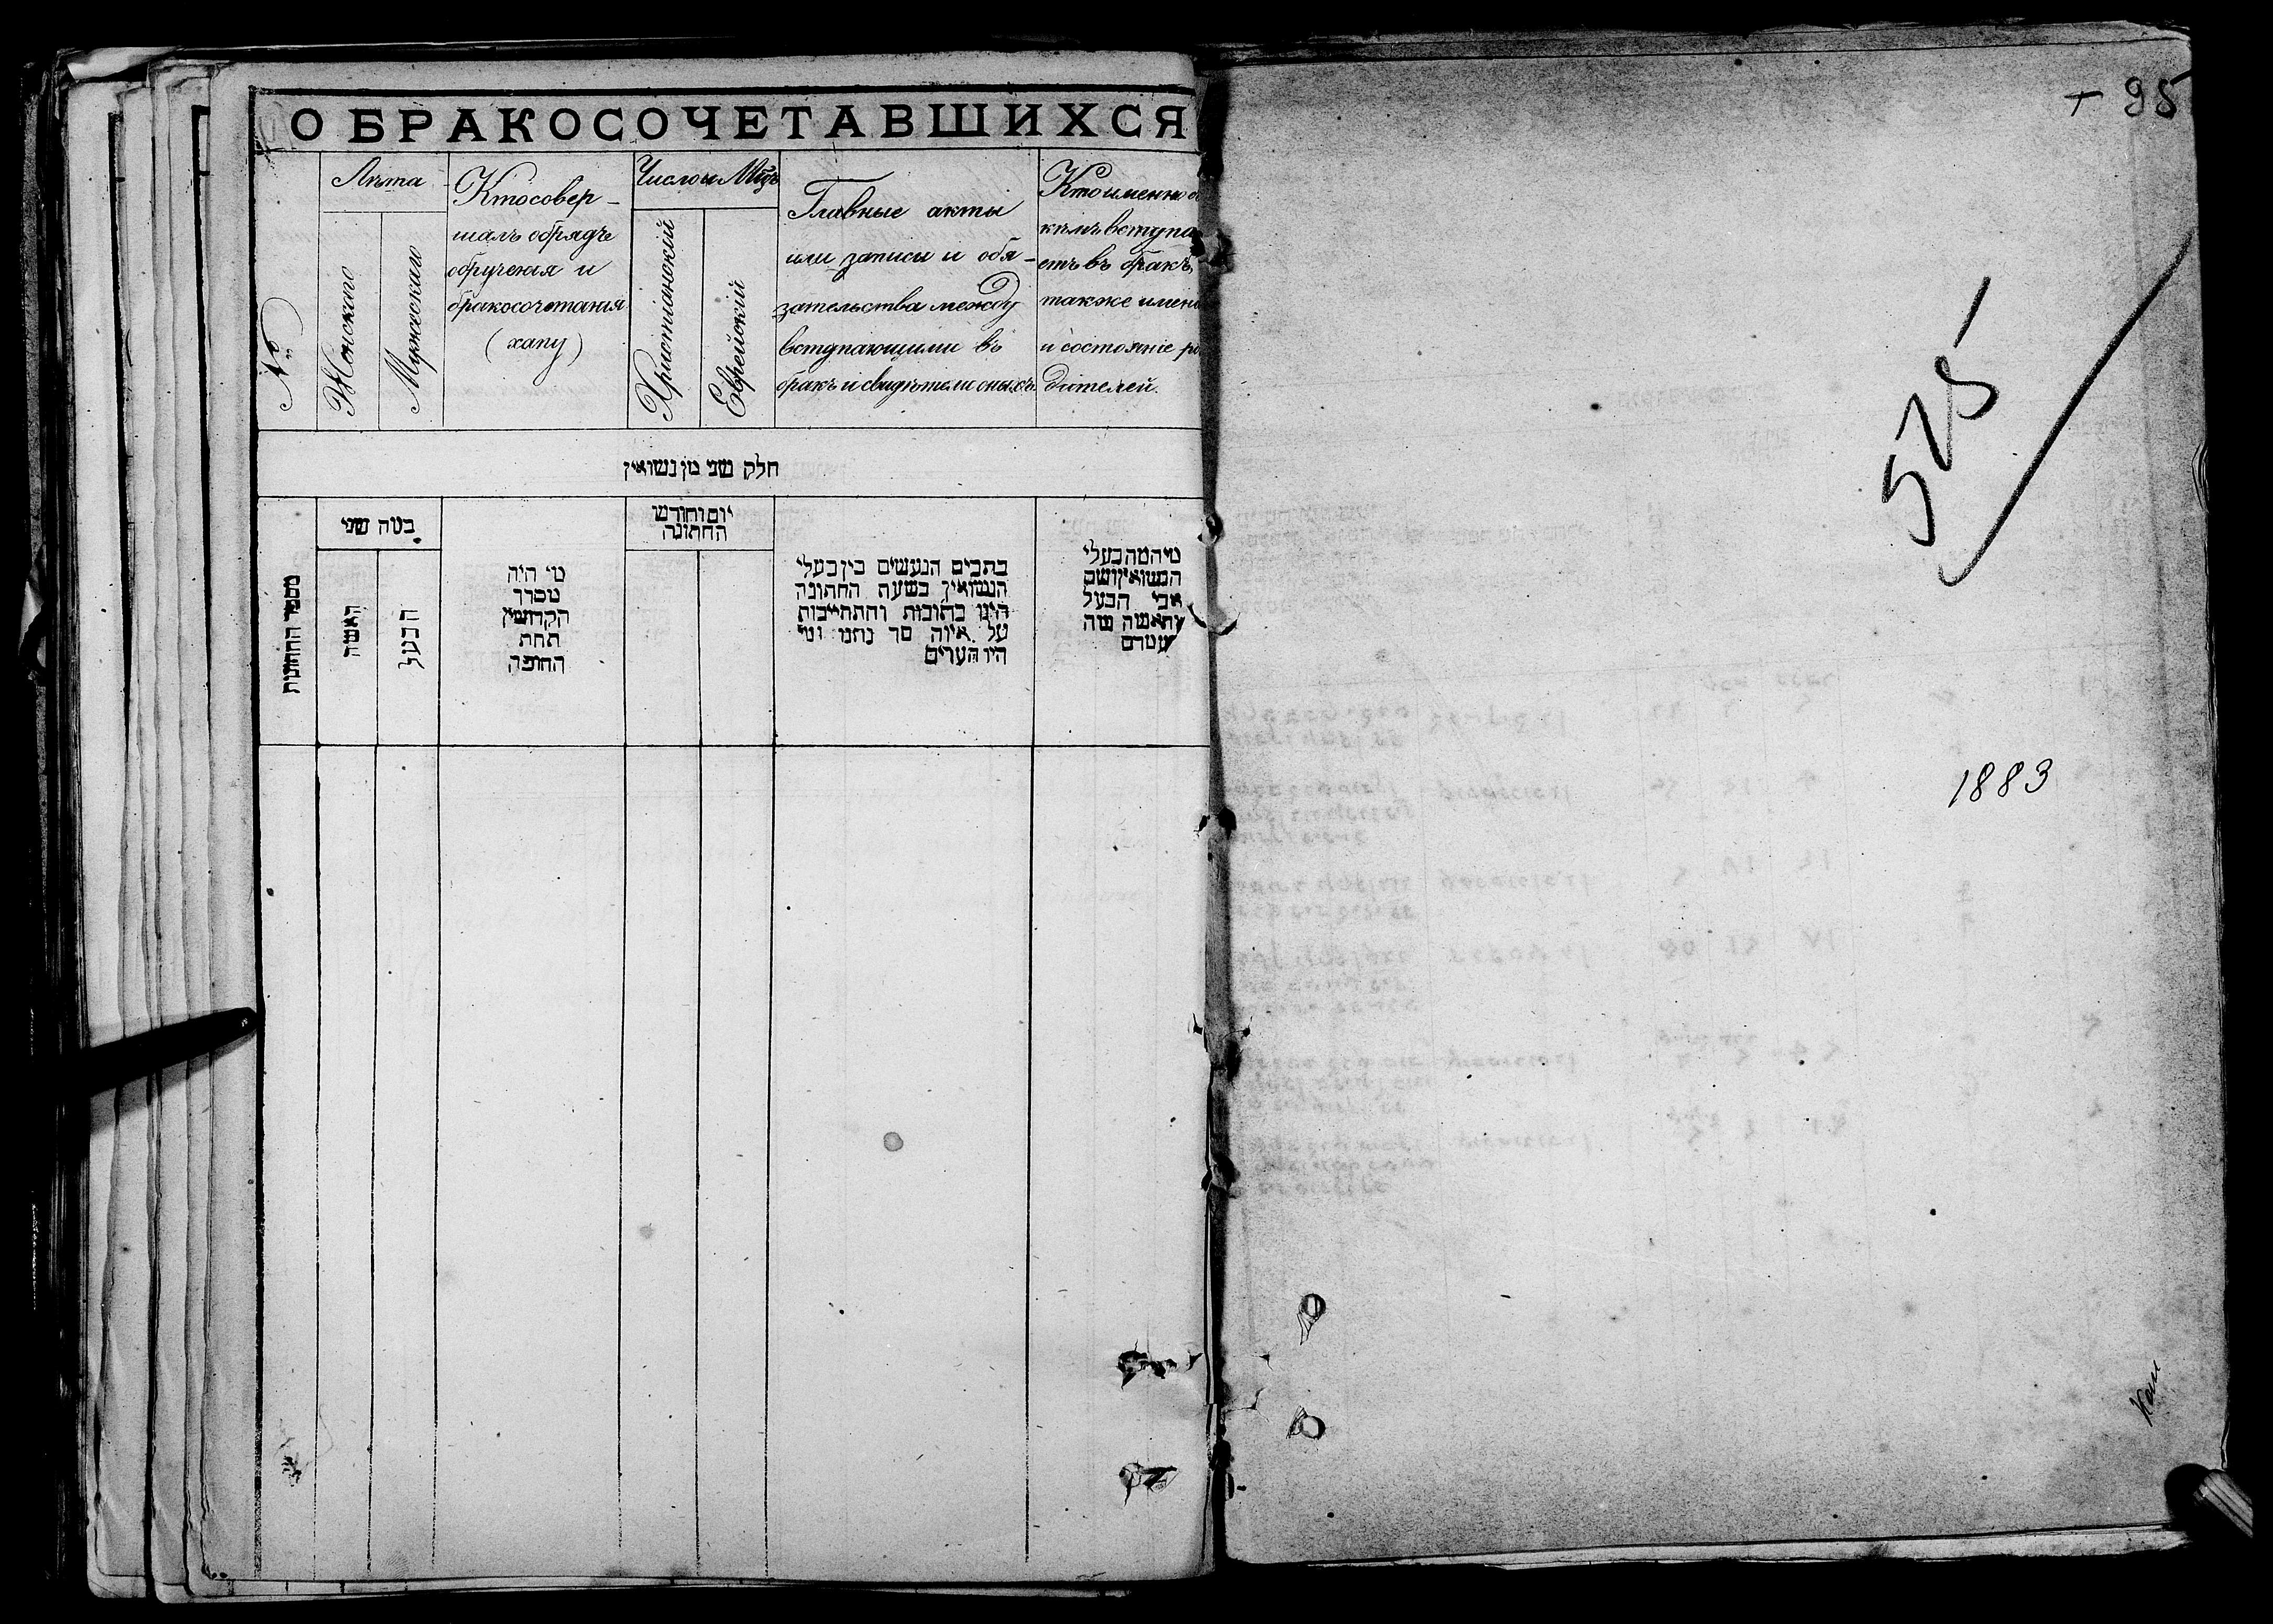 О БРАКОСОЧЕТАВШИХСЯ
№
Лѣта
Женскаго
Мужескаго
Кто совер-
шалъ обрядъ
обрученія и
бракосочетанія
(хапу)
Число и Мѣц
Христіанскій
Еврейскій
Главные акты
или записи и обя-
зательства между
вступающими въ
бракъ и свидѣтели оныхъ
Кто именно
кѣмъ вступа
етъ въ бракъ,
также имена
и состояніе ро
дителей.
חלק שני מן נשואין
מספר החתונות
כמה שני
האשה
הבעל
מי היה
מסדר
הקדושין
תחת
החופה
יום וחודש
החתונה
כתבים הנעשים בין בעלי
הנשואין בשעת החתונה
היינו כתובות והתחייבות
על איזה סך נתנו ומי
היו העדים
מי המה בעלי
הנשואין ושם
אבי הבעל
והאשה מה
95
575
1883